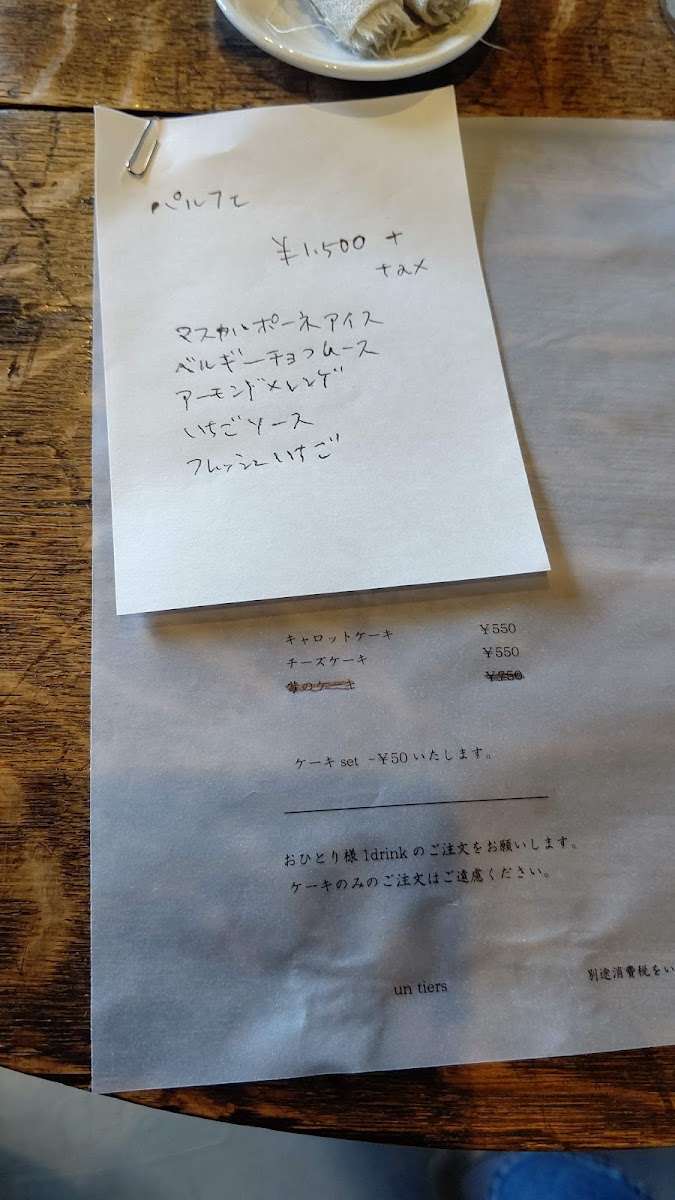 ・パルフェ
¥1,500 +
tax
マスカルポーネアイス
ベルギーチョコムース
アーモンドメレンゲ
いちごソース
フレッシュいちご
キャロットケーキ ¥550
チーズケーキ ¥550
苺のケーキ ¥750
ケーキ set -¥50 いたします。
おひとり様 1drink のご注文をお願いします。
ケーキのみのご注文はご遠慮ください。
別途消費税をい
un tiers